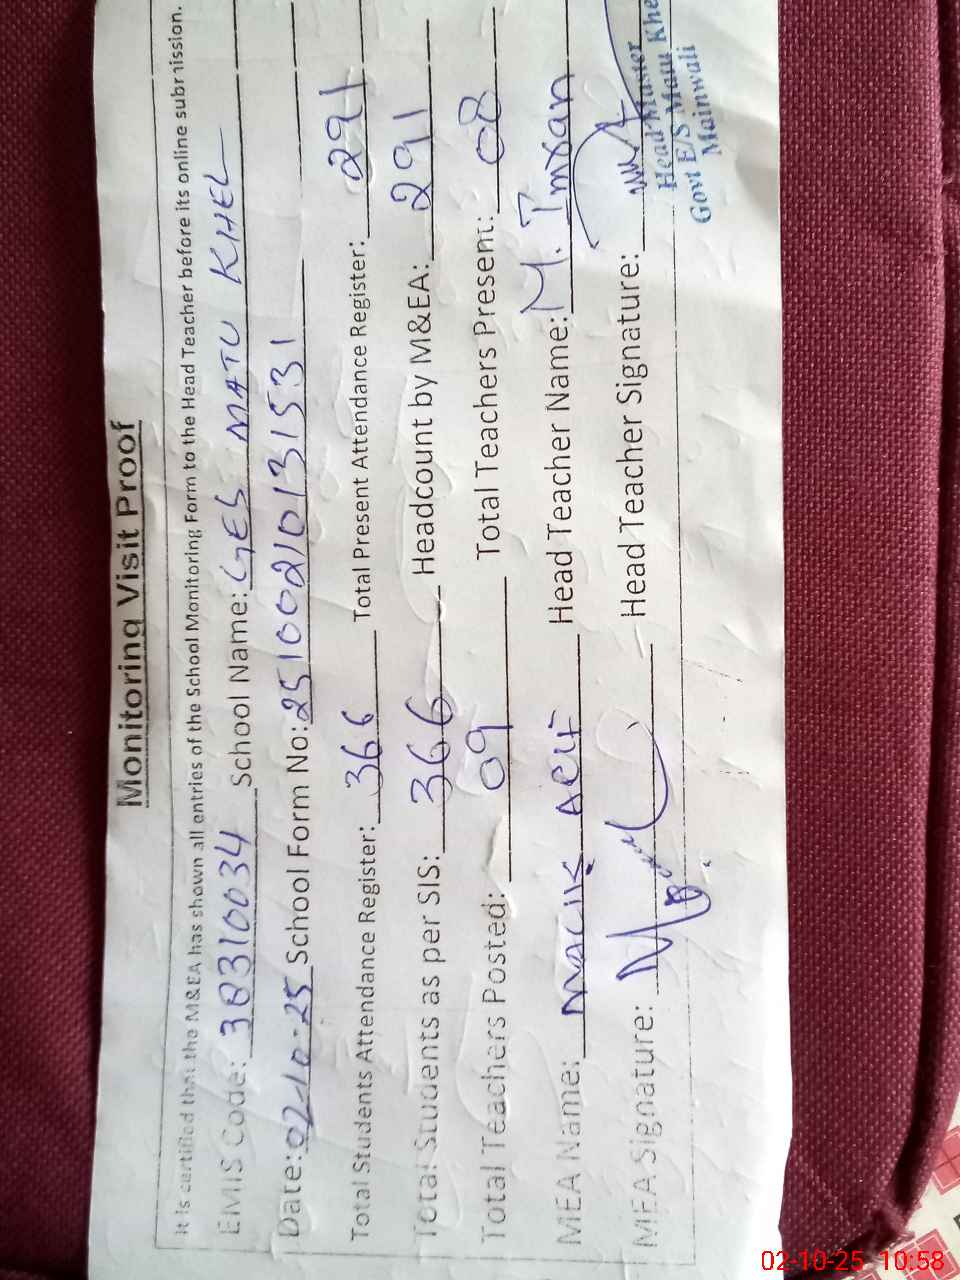 Monitoring Visit Proof
It is certified that the M&EA has shown all entries of the School Monitoring Form to the Head Teacher before its online submission.
EMIS Code: 38310034 School Name: GES MATU KHEL
Date: 02-10-25 School Form No: 25100210131531
Total Students Attendance Register: 366 Total Present Attendance Register: 291
Total Students as per SIS: 366 Headcount by M&EA: 291
Total Teachers Posted: 09 Total Teachers Present: 08
MEA Name: Malik Head Teacher Name: M. Imran
MEA Signature: Head Teacher Signature:
Head Master
Govt E/S Matu Khe
Mainwali
02-10-25 10:58